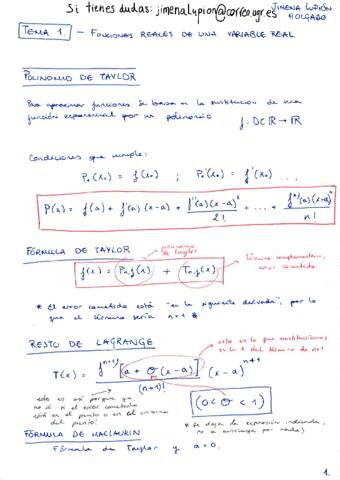 Si tienes dudas: jimenalupion@correo.ugr.es
JIMENA LUPIÓN
HOLGADO
TEMA 1. - FUNCIONES REALES DE UNA VARIABLE REAL
POLINOMIO DE TAYLOR
Para aproximar funciones. Se basa en la sustitución de una
función exponencial por un polinomio f: D⊂ℝ → ℝ
Condiciones que cumple:
Pₙ(x₀) = f(x₀) ; Pₙ'(x₀) = f'(x₀) ...
P(x) = f(a) + f'(a)(x-a) + f''(a)(x-a)²/2! + ... + fⁿ⁾(a)(x-a)ⁿ/n!
FÓRMULA DE TAYLOR
polinomio
de Taylor
f(x) = Pₙ,f(x) + Tₙ,f(x)
Término complementario,
error cometido.
* El error cometido está "en la siguiente derivada", por lo
que el término sería n+1 *
RESTO DE LAGRANGE
esto es lo que sustituimos
en la x del término de n+1
T(x) = fⁿ⁺¹⁾[a + Θ(x-a)]/(n+1)! (x-a)ⁿ⁺¹
esto es así porque yo
no sé si el error cometido
está en el punto o en el entorno
del punto!
(0 < Θ < 1)
* se deja la expresión indicada,
no se sustituye por nada)
FÓRMULA DE MACLAURIN
Fórmula de Taylor y a=0.
1.